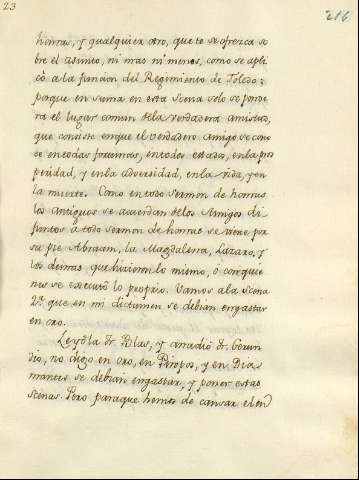 23
216
honras, y qualquiera otro, que te se ofrezca so
bre el asunto, ni mas ni menos, como se apli
có a la funcion del Regimiento de Toledo;
porque en suma en esta Scena solo se ponde
ra el lugar comun de la verdadera amistad,
que consiste en que el verdadero Amigo se cono
ce en todas fortunas, en todos estados, en la pros
peridad, y en la adversidad, en la vida, y en
la muerte. Como en todo Sermon de honras
los Antiguos se acuerdan de los Amigos di
funtos a todo sermon de honras se viene por
su pie Abraam, la Magdalena, Lazaro, y
los demas que hicieron lo mismo, ó con quie
nes se executó lo proprio. Vamos a la Scena
2ª que en mi dictamen se debian engastar
en oro.
Leyóla Dn. Blas, y añadió Dn. Gerun
dio, no digo en oro, en Piropos, y en Dia
mantes se debian engastar, y poner estas
Scenas. Pero para que hemos de cansar el en